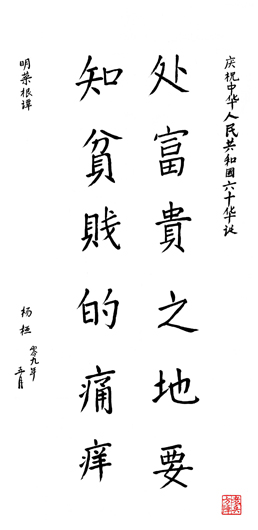 庆祝中华人民共和國六十华诞
处富貴之地要
知貧賤的痛痒
明菜根譚
杨桓
零九年
五月